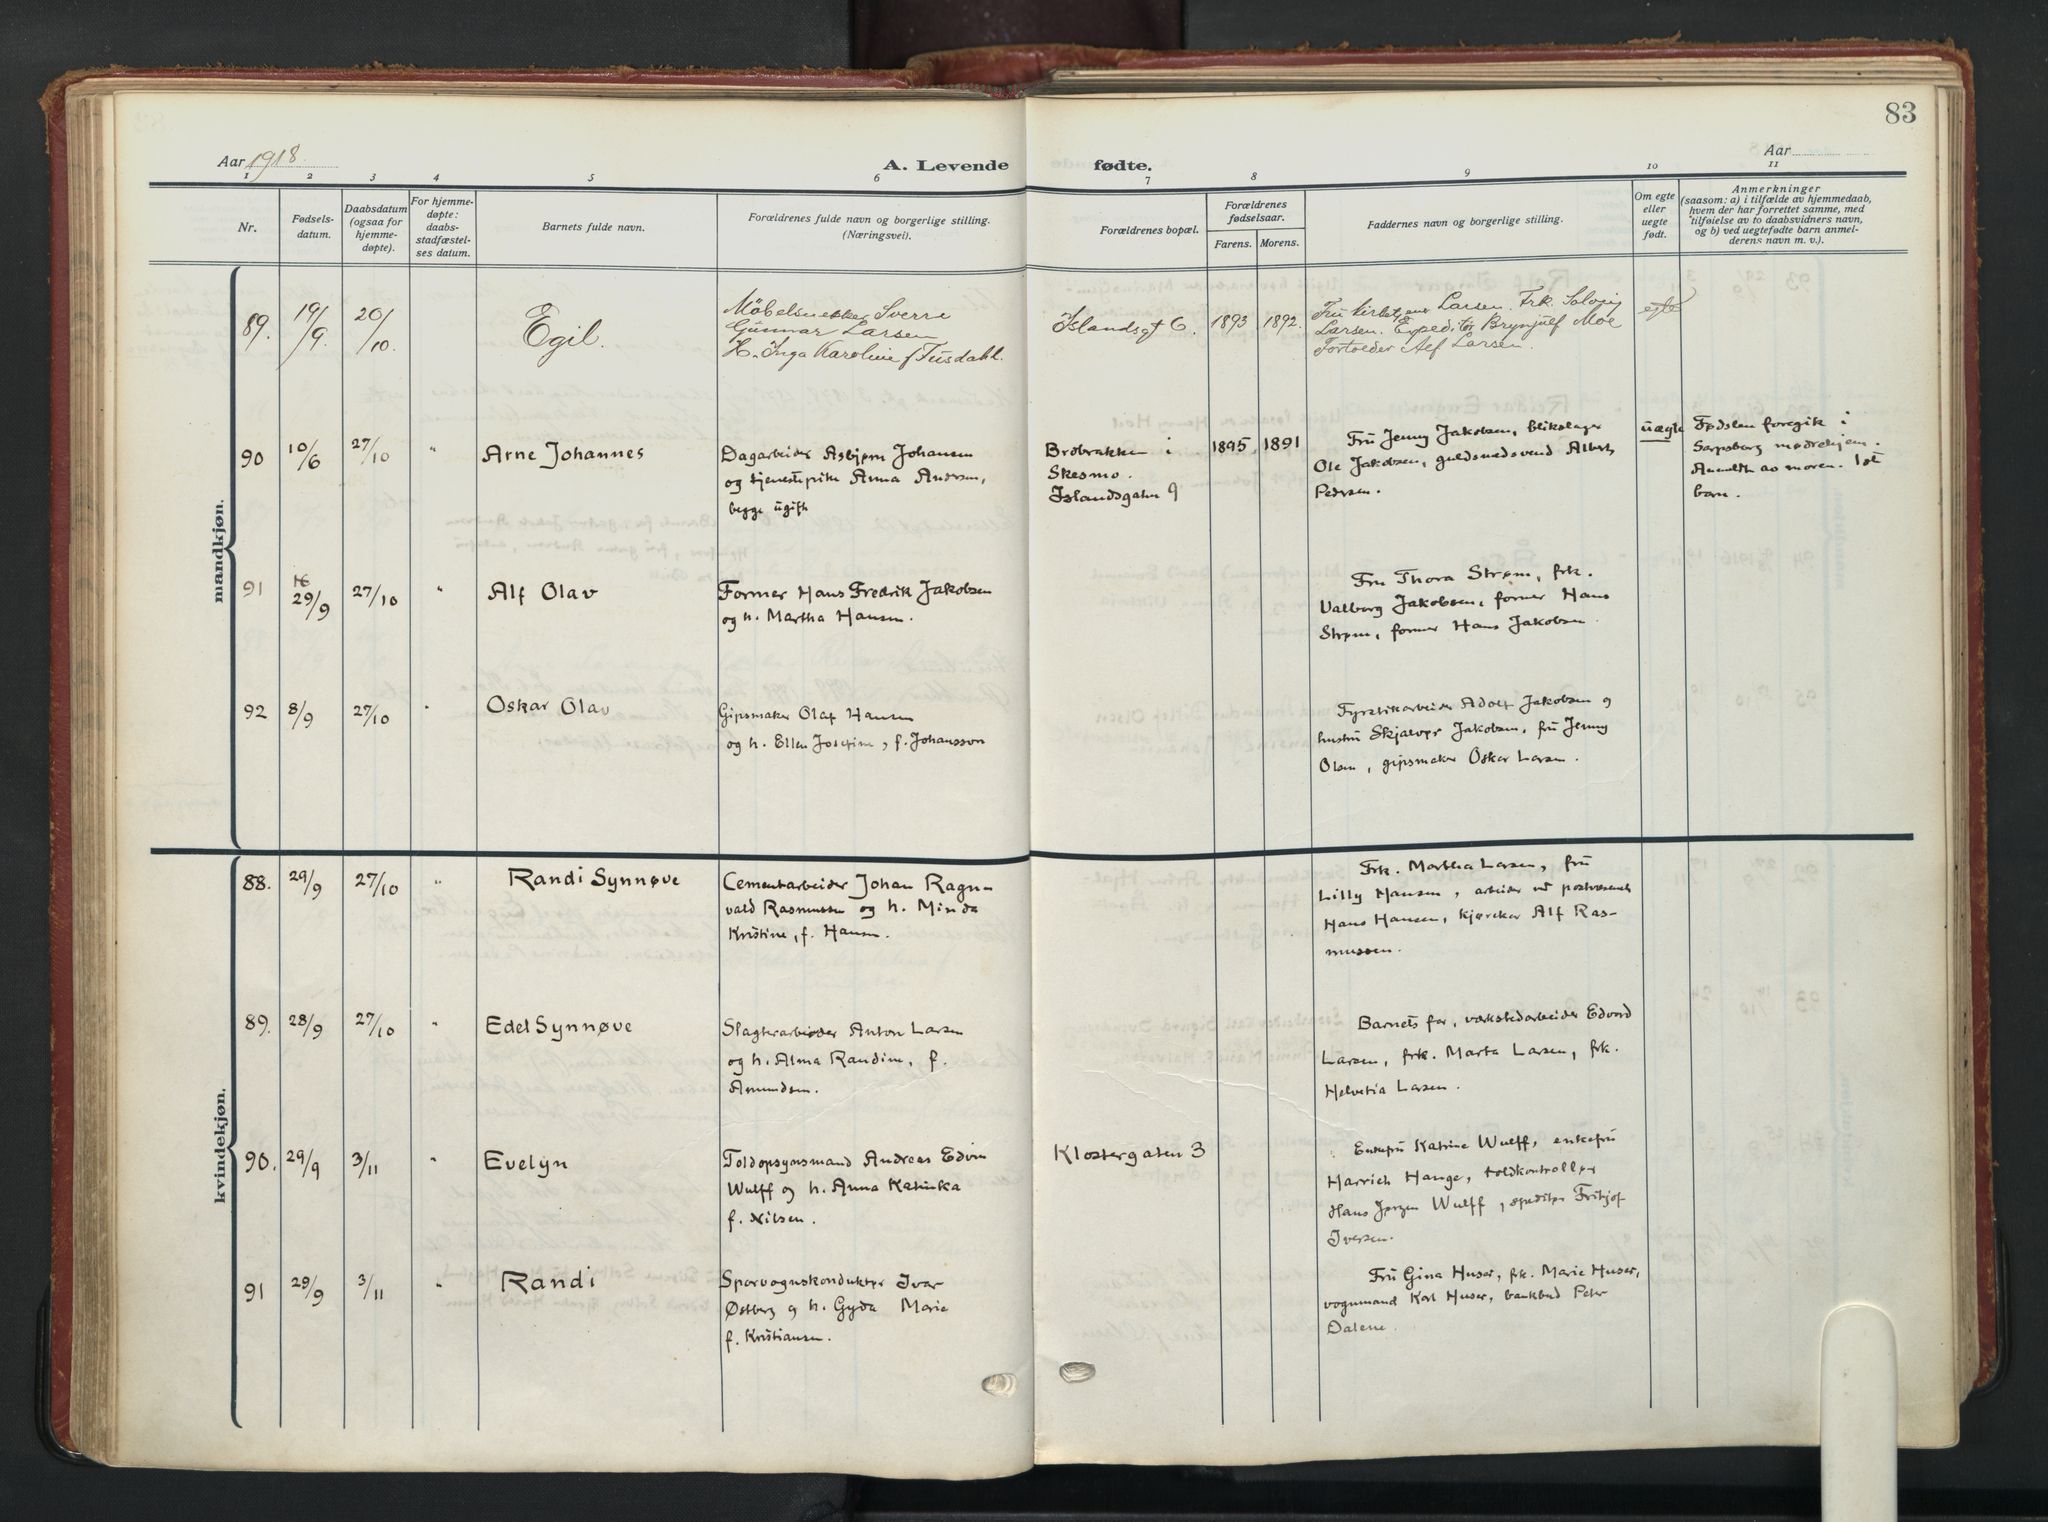 83
Aar 1918.
A. Levende fødte.
Aar
1 2 3 4 5 6 7 8 9 10 11
Nr.
Fødsels-
datum.
Daabsdatum
(ogsaa for
hjemme-
døpte).
For hjemme-
døpte:
daabs-
stadfæstel-
ses datum.
Barnets fulde navn.
Forældrenes fulde navn og borgerlige stilling.
(Næringsvei).
Forældrenes bopæl.
Forældrenes
fødselsaar.
Farens. Morens.
Faddernes navn og borgerlige stilling.
Om egte
eller
uegte
født.
Anmerkninger
(saasom: a) i tilfælde av hjemmedaab,
hvem der har forrettet samme, med
tilføielse av to daabsvidners navn,
og b) ved uegtefødte barn anmel-
derens navn m. v.).
mandkjøn.
89. 19/9. 20/10. Egil.
Møbelsnekker Sverre
Gunnar Larsen
H. Inga Karoline f. Tusdahl.
Islandsgt 6. 1893 1892.
Larsen. Frk. Solveig
Larsen. Expeditør Brynjulf Moe
Alf Larsen.
egte
90 10/6 27/10 " Arne Johannes
Dagarbeider Asbjørn Johansen
og tjenestepike Anna Andersen,
begge ugift
Brobrakken i
Skesmo.
Islandsgaten 9
1895 1891
Fru Jenny Jakobsen, blikslager
Ole Jakobsen, guldsmedsvend Albert
Pedersen.
uægte
Fødslen foregik i
Sarpsborg mødrehjem.
Anmeldt av moren. 1st
barn.
91 29/9 27/10 " Alf Olav
Former Hans Fredrik Jakobsen
og h. Martha Hansen.
Fru Thora Strøm, frk.
Valborg Jakobsen, former Hans
Strøm, former Hans Jakobsen.
92 8/9 27/10 " Oskar Olav
Gipsmaker Olaf Hansen
og h. Ellen Josefine, f. Johansson
Fyrstikarbeider Adolf Jakobsen og
hustru Jakobsen, fru Jenny
Olsen, gipsmaker Oskar Larsen.
kvindekjøn.
88. 29/9 27/10 " Randi Synnøve
Cementarbeider Johan Ragn-
vald Rasmussen og h. Minda
Kristine, f. Hansen.
Frk. Martha Larsen, fru
Lilly Hansen, arbeider ved postvæsenet
Hans Hansen, kjøreker Alf Ras-
mussen.
89. 28/9 27/10 " Edel Synnøve
Slagterarbeider Anton Larsen
og h. Alma Randine, f.
Amundsen.
Barnets far, værkstedarbeider Edvard
Larsen, frk. Marta Larsen, frk.
Helvetia Larsen.
90. 29/9 3/11 " Evelyn
Toldopsynsmand Andreas Edvin
Wulff og h. Anna Katinka
f. Nilsen.
Klostergaten 3
Enkefru Katrine Wulff, enkefru
Harriet Hauge, toldkontrollør
Hans Jørgen Wulff, speditør Fritjof
Iversen.
91 29/9 3/11 " Randi
Sporvognskonduktør Ivar
Østberg og h. Gyda Marie
f. Kristiansen.
Fru Gina Huser, frk. Marie Huser,
vognmand Karl Huser, bankbud Peter
Dalene.